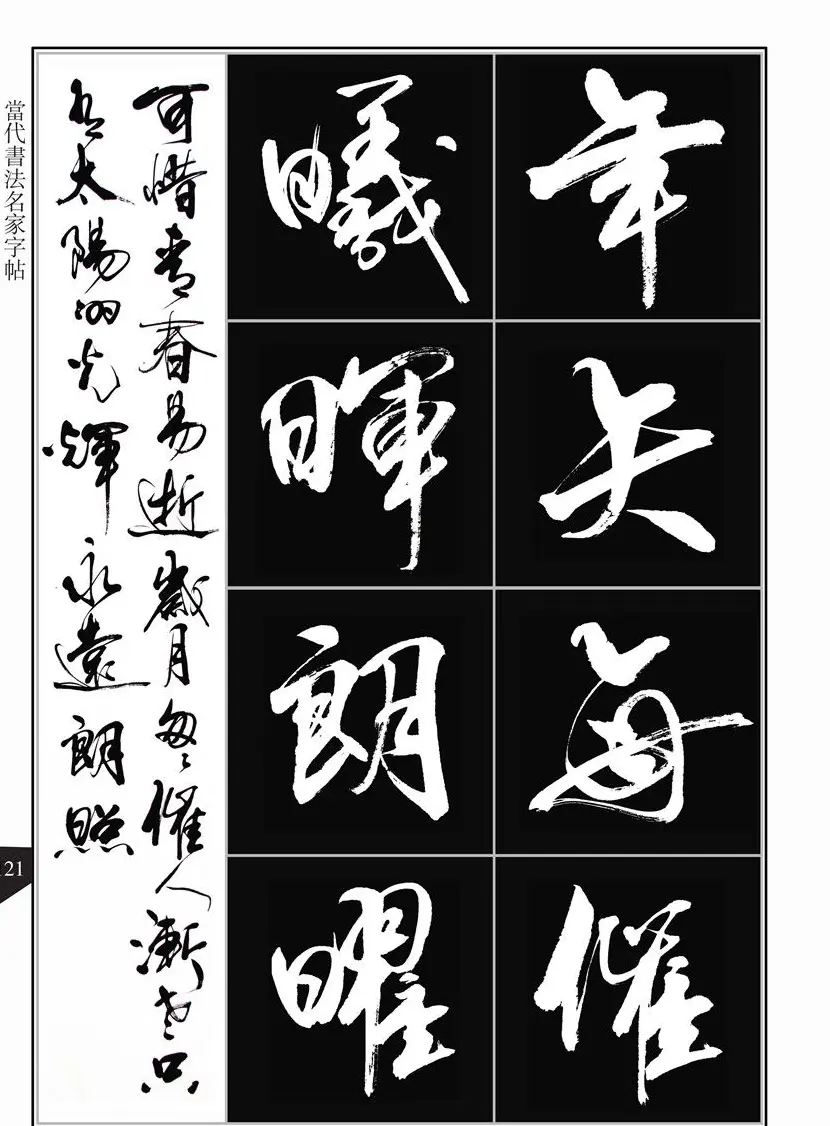 年矢每催
曦暉朗曜
可惜青春易逝歲月每每催人漸老只
有太陽的光輝永遠朗照
當代書法名家字帖
121